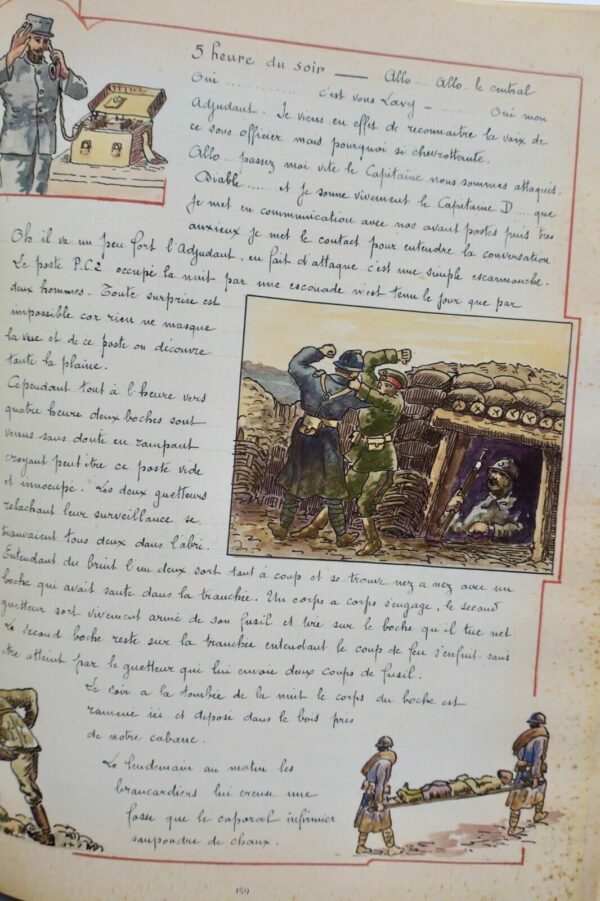 5 heure du soir —— Allo.... Allo.. le central
Oui .............. c'est vous Lavy - ..... Oui mon
Adjudant. Je viens en effet de reconnaitre la voix de
ce sous officier mais pourquoi si chevrottante.
Allo.. passez moi vite le Capitaine nous sommes attaqués.
Diable ..... et je sonne vivement le Capitaine D.... que
je met en communication avec nos avant postes puis tres
anxieux je met le contact pour entendre la conversation
Oh il va un peu fort l'Adjudant, en fait d'attaque c'est une simple escarmouche.
Le poste P.C2 occupé la nuit par une escouade n'est tenu le jour que par
deux hommes. Toute surprise est
impossible car rien ne masque
la vue et de ce poste on découvre
toute la plaine.
Cependant tout à l'heure vers
quatre heure deux boches sont
venus sans doute en rampant
croyant peut être ce poste vide
et innocupé. Les deux guetteurs
relachant leur surveillance se
trouvaient tous deux dans l'abri.
Entendant du bruit l'un deux sort tout à coup et se trouve nez a nez avec un
boche qui avait sauté dans la tranchée. Un corps a corps s'engage, le second
guetteur sort vivement armé de son fusil et tire sur le boche qu'il tue net.
Le second boche resté sur la tranchée entendant le coup de feu s'enfuit sans
être atteint par le guetteur qui lui envoie deux coups de fusil.
Le soir a la tombée de la nuit le corps du boche est
ramené ici et deposé dans le bois pres
de notre cabane.
Le lendemain au matin les
brancardiers lui creuse une
fosse que le caporal infirmier
saupoudre de chaux.
159